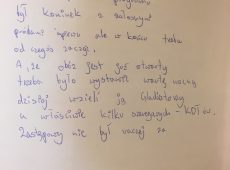 był kominek z
ale w końcu trzeba
od czegoś zacząć.
A, że obóz jest już otwarty
trzeba było wystawić wartę nocną
dzisiaj wzięli ją Gladiatorzy
u właściwie kilku szeregowych - KOTów.
Zastępowy nie był raczej za